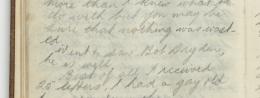 more than I knew what to
do with but you may be
sure that nothing was wast-
ed.
Went to see Bob Dagdon,
he is well
Best of all I received
25 letters, I had a gay old